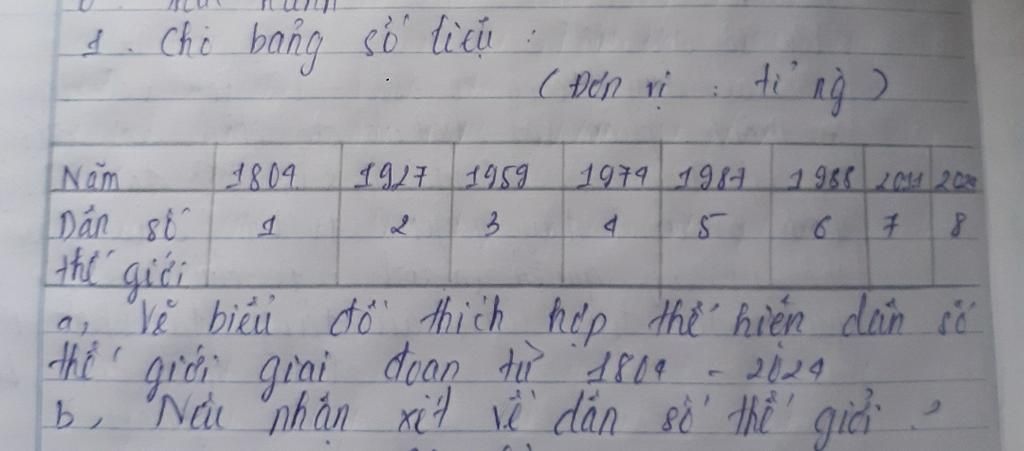 1. Cho bảng số liệu :
(Đơn vị : tỉ ng)
Năm 1804 1927 1959 1974 1987 1988 2011 2024
Dân số 1 2 3 4 5 6 7 8
thế giới
a, Vẽ biểu đồ thích hợp thể hiện dân số
thế giới giai đoạn từ 1804 - 2024
b, Nêu nhận xét về dân số thế giới ?